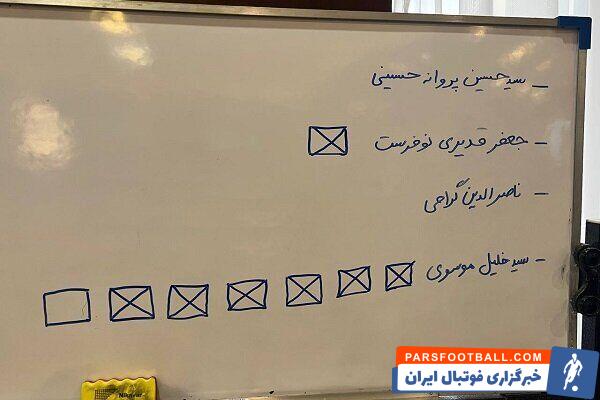 - سید حسین پروانه حسینی
- جعفر قدیری نوفرست
- ناصرالدین گراحی
- سید خلیل موسوی
PARSFOOTBALL.COM
خبرگزاری فوتبال ایران